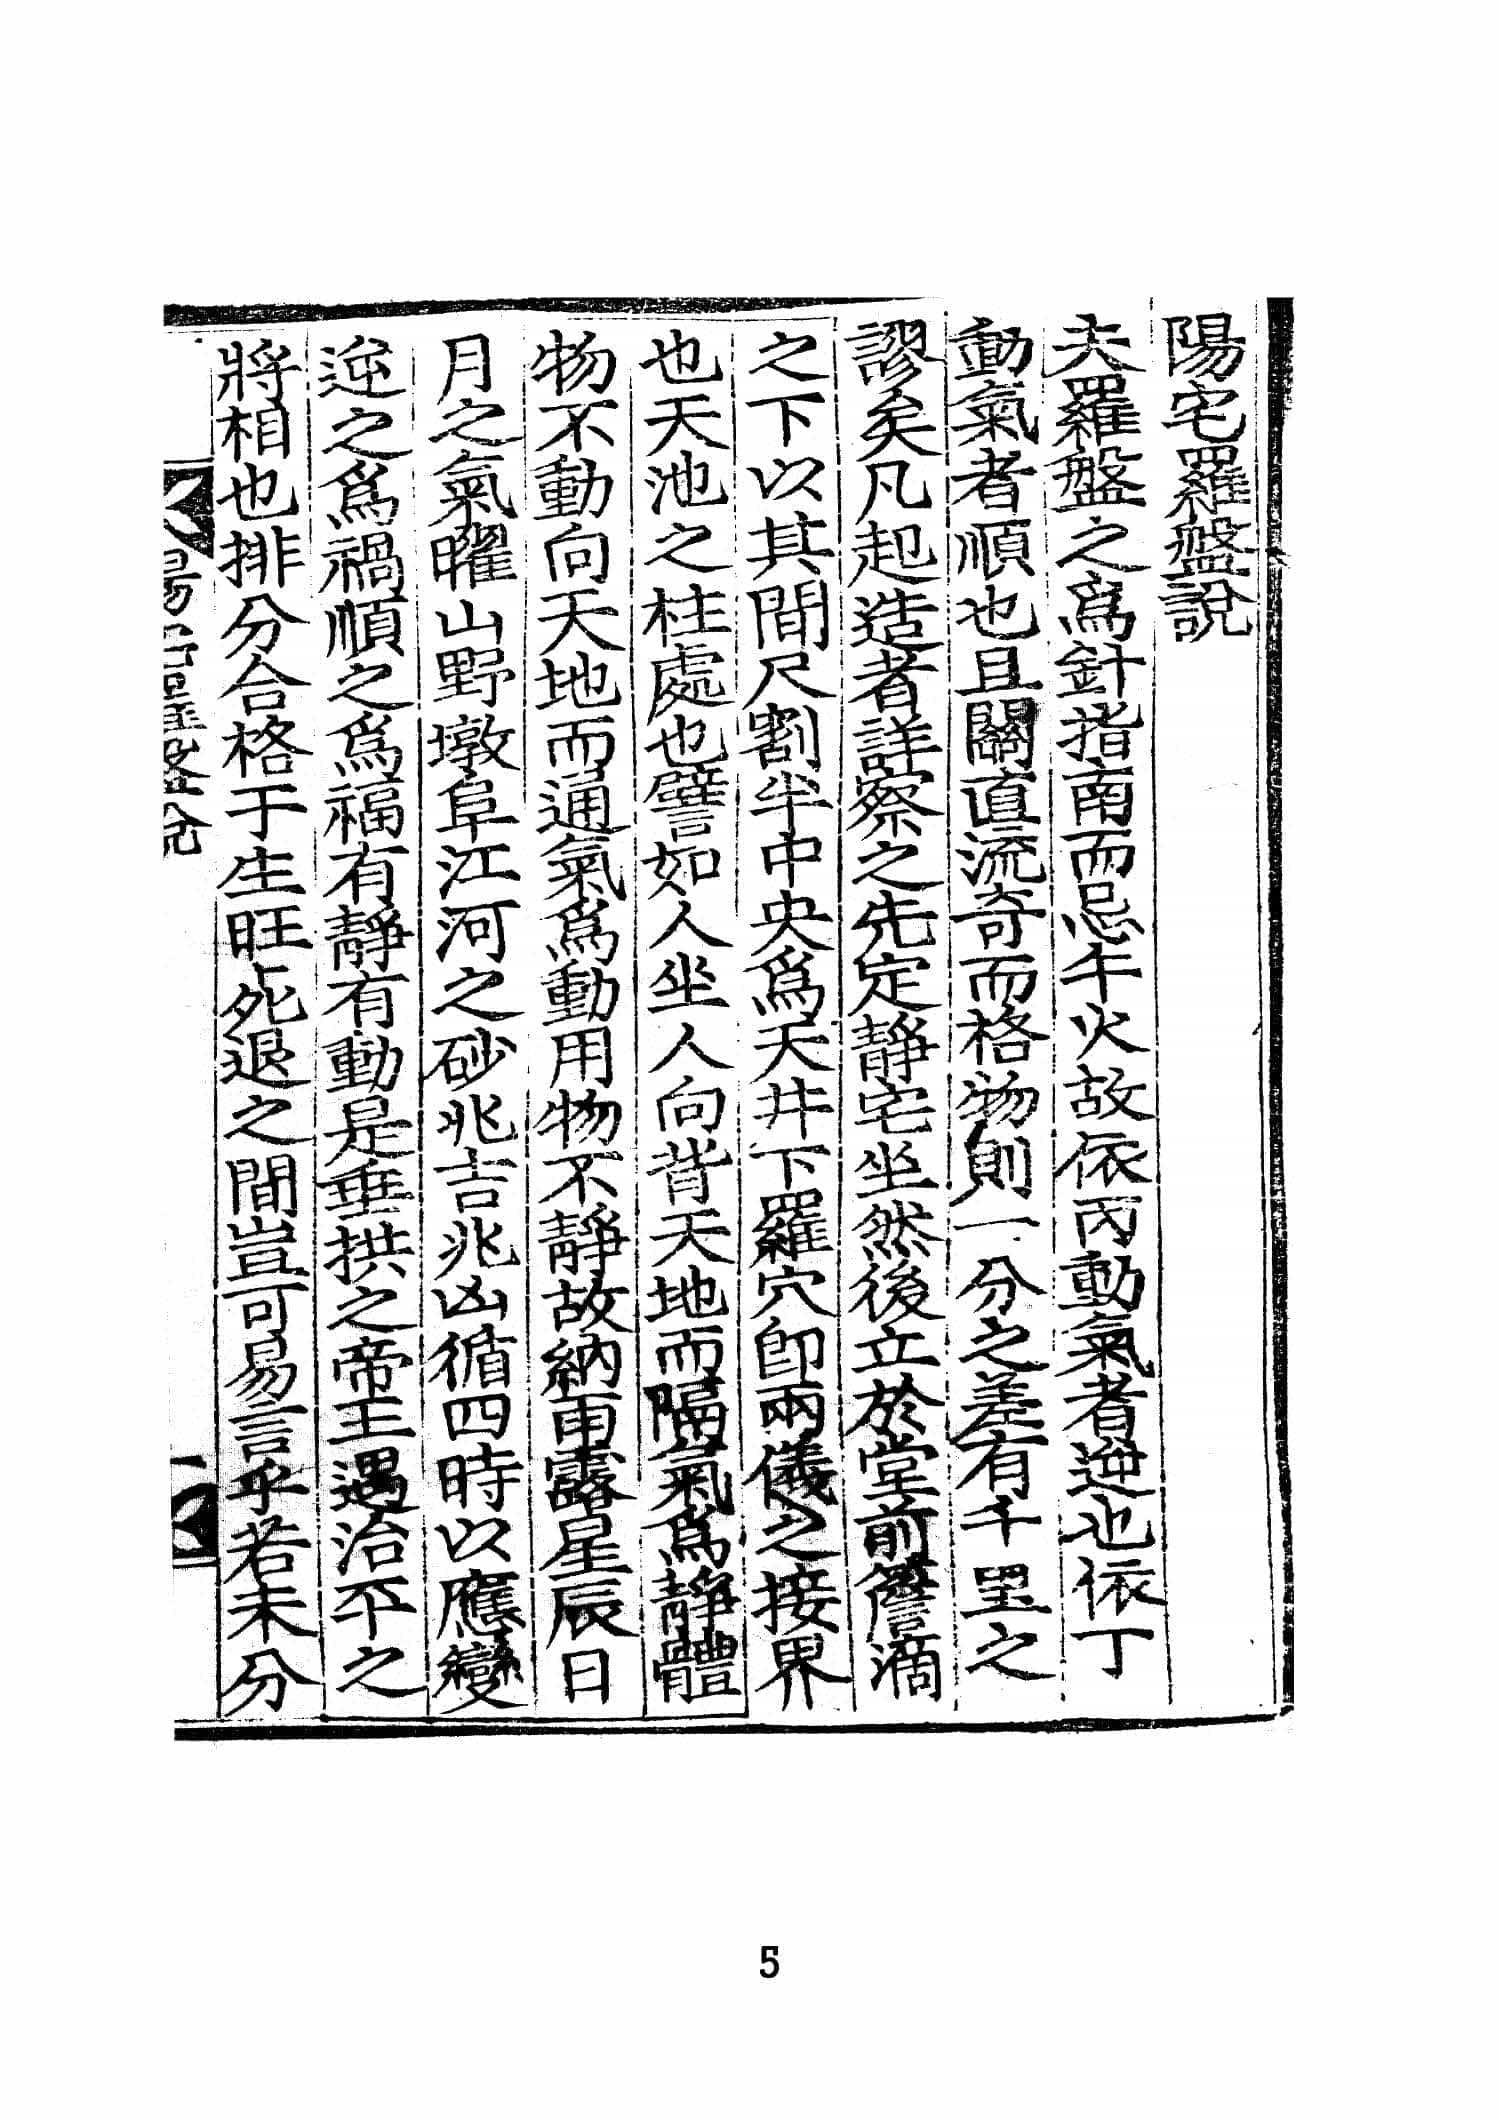 陽宅羅盤說
夫羅盤之爲針指南而忌午火故依丙動氣者逆也依丁
動氣者順也且關直流奇而格物則一分之差有千里之
謬矣凡起造者詳察之先定靜宅坐然後立於堂前簷滴
之下以其間尺割半中央爲天井下羅穴卽兩儀之接界
也天池之柱處也譬如人坐人向背天地而隔氣爲靜體
物不動向天地而通氣爲動用物不靜故納雨露星辰日
月之氣曜山野墩阜江河之砂兆吉兆凶循四時以應變
逆之爲禍順之爲福有靜有動是垂拱之帝王遇治平之
將相也排分合格于生旺死退之間豈可易言乎若未分
陽宅羅盤說
5